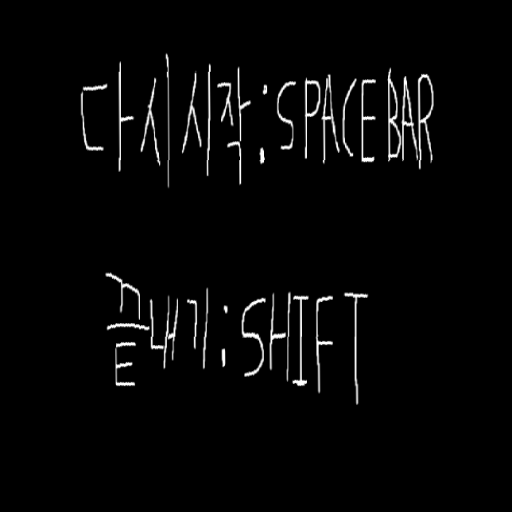 다시시작:SPACEBAR
끝내기:SHIFT